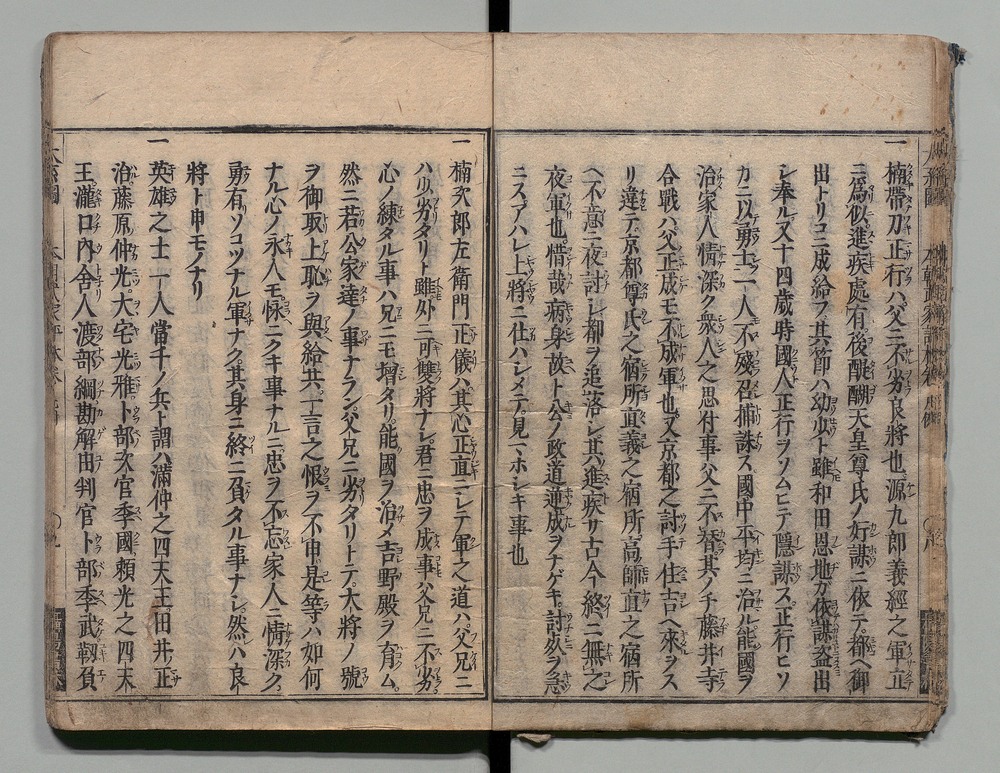 一楠帯刀正行ハ父ニ不劣良將也源九郎義經之軍立
ニ爲似進疾處有後醍醐天皇尊氏ノ奸謀ニ依テ都ヘ御
出トリコニ成給フ其節ハ幼少ト雖和田恩地ガ依謀盗出
シ奉ル又十四歳時國人正行ヲソムヒテ隱謀ス正行ヒソ
カニ以勇士二人不殘召捕誅ス國中平均ニ治ル能國ヲ
治家人情深ク衆人之思付事父ニ不替其ノチ藤井寺
合戰ハ父正成モ不成軍也又京都之討手住吉ヘ來ヲス
リ違テ京都尊氏之宿所直義之宿所高師直之宿所
ヘ不意ニ夜討シ都ヲ追落シ其ハ進疾サ古今終ニ無之
夜軍也惜哉病身故ト公ノ政道違成ヲナゲキ討死ヲ急
ニスアハレ上將ニ仕ハシメテ見マホシキ事也
一楠次郎左衛門正儀ハ其心正直ニシテ軍之道ハ父兄ニ
ハ少劣タリト雖外ニ可雙將ナシ君ニ忠ヲ成事父兄ニ不劣
心ノ練タル事ハ兄ニモ增タリ能國ヲ治メ吉野殿ヲ育ム
然ニ若公家達ノ事ナランバ父兄ニ劣タリトテ大將ノ號
ヲ御取上恥ヲ與給共一言之恨ヲ不申是等ハ如何
ナル心ノ永人モ怺ニクキ事ナルニ忠ヲ不忘家人ニ情深ク
勇有ソコツナル軍ナク其身ニ終ニ負タル事ナシ然ハ良
將ト申モノナリ
一英雄之士一人當千ノ兵ト謂ハ滿仲之四天王田井ノ正
治藤原仲光大宅光雅卜部次官季國頼光之四天
王瀧口内舎人渡部綱勘解由判官卜部季武靱負